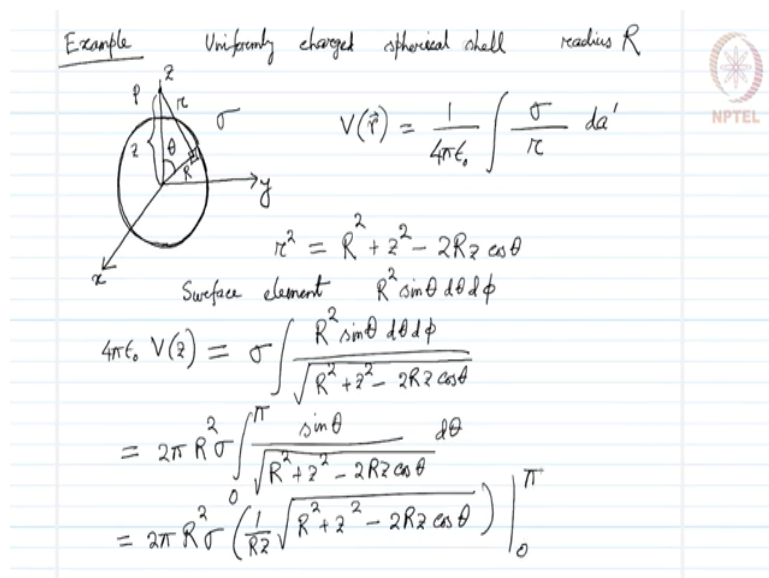 Example Uniformly charged spherical shell radius R
NPTEL
z
P r
σ
z θ
R
y
x
V(r⃗) = 1/(4πε₀) ∫ σ/r da'
r² = R² + z² - 2Rz cosθ
Surface element R² sinθ dθ dφ
4πε₀ V(z) = σ ∫ R² sinθ dθ dφ / √(R² + z² - 2Rz cosθ)
= 2πR²σ ∫₀^π sinθ / √(R² + z² - 2Rz cosθ) dθ
= 2πR²σ (1/(Rz) √(R² + z² - 2Rz cosθ)) |₀^π